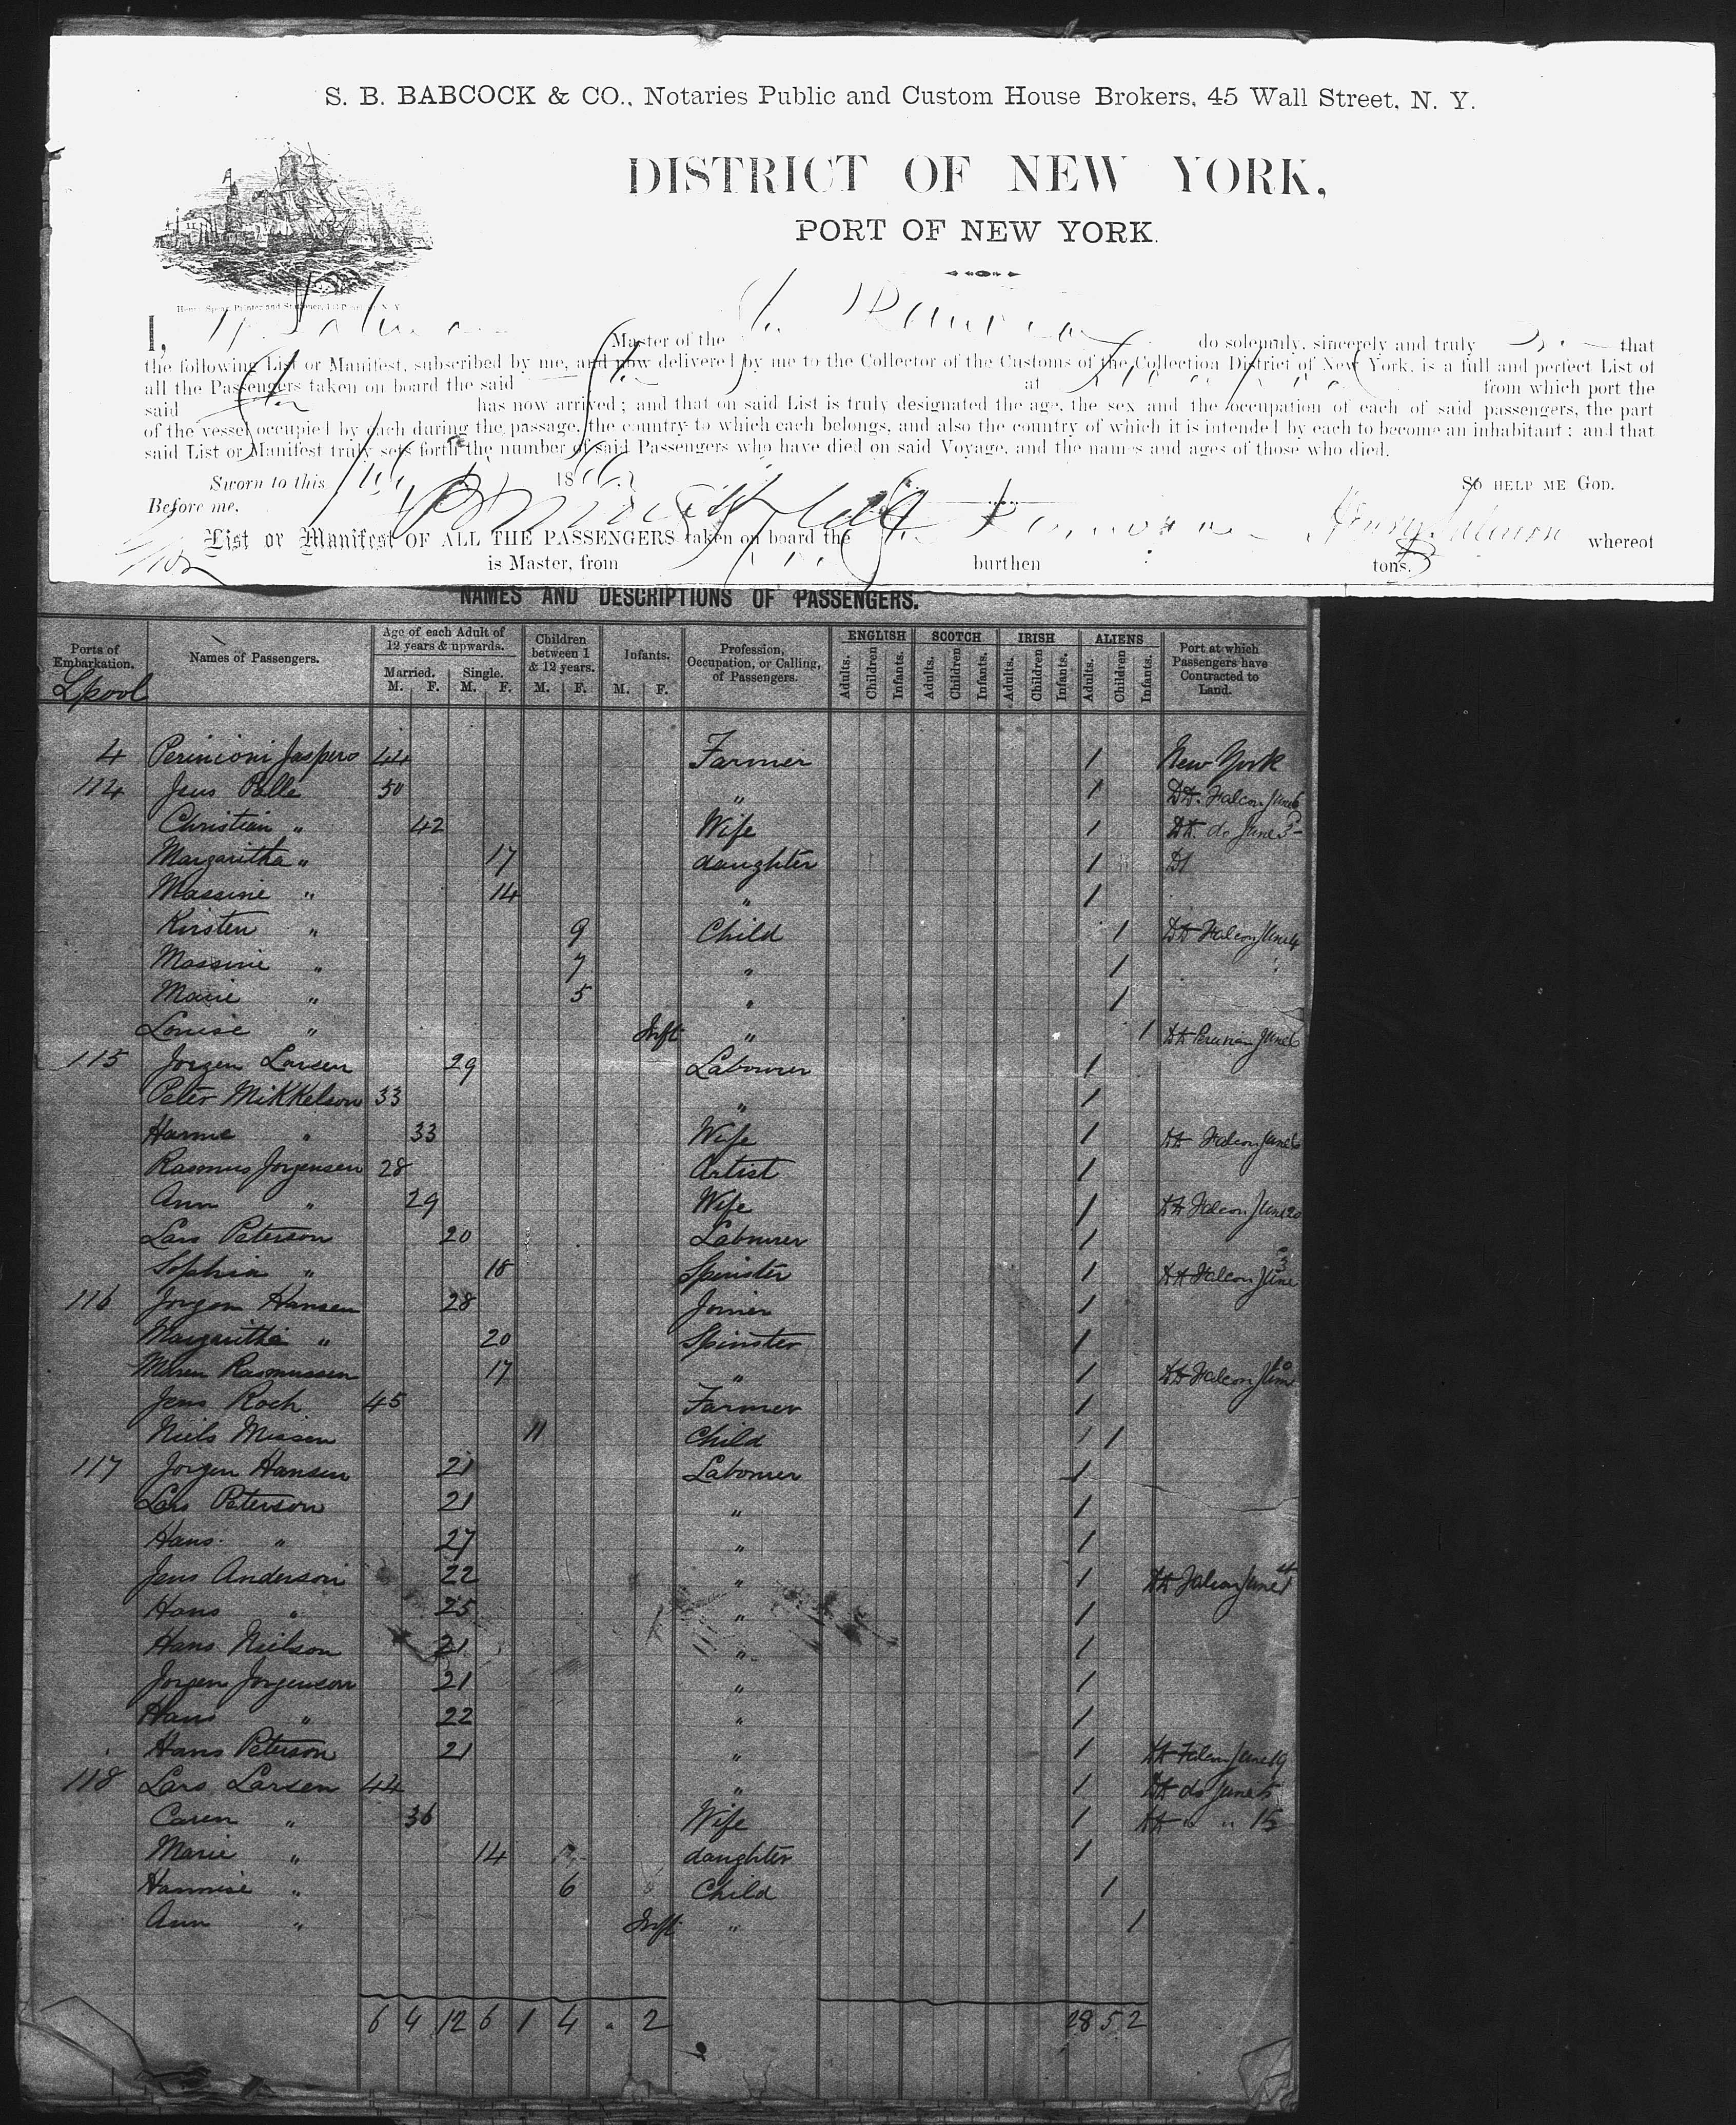 S. B. BABCOCK & CO., Notaries Public and Custom House Brokers, 45 Wall Street, N. Y.
DISTRICT OF NEW YORK,
PORT OF NEW YORK.
I, Master of the do solemnly, sincerely and truly that
the following List or Manifest, subscribed by me, and now delivered by me to the Collector of the Customs of the Collection District of New York, is a full and perfect List of
all the Passengers taken on board the said at from which port the
said has now arrived; and that on said List is truly designated the age, the sex and the occupation of each of said passengers, the part
of the vessel occupied by each during the passage, the country to which each belongs, and also the country of which it is intended by each to become an inhabitant; and that
said List or Manifest truly sets forth the number of said Passengers who have died on said Voyage, and the names and ages of those who died.
Sworn to this 186 So HELP ME GOD.
Before me,
List or Manifest OF ALL THE PASSENGERS taken on board the Henry Salmon whereof
is Master, from burthen tons.
NAMES AND DESCRIPTIONS OF PASSENGERS.
Ports of Embarkation. Names of Passengers. Age of each Adult of 12 years & upwards. Married. M. F. Single. M. F. Children between 1 & 12 years. M. F. Infants. M. F. Profession, Occupation, or Calling, of Passengers. ENGLISH Adults. Children Infants. SCOTCH Adults. Children Infants. IRISH Adults. Children Infants. ALIENS Adults. Children Infants. Port at which Passengers have Contracted to Land.
Lpool
4 Perincioni Jaspero 44 Farmer 1 New York
114 Jens Palle 50 " 1 Falcon June
Christian " 42 Wife 1 do June 3
Margaritha " 17 daughter 1
Massine " 14 " 1
Kirsten " 9 Child 1 Falcon June 4
Massine " 7 " 1
Marie " 5 " 1
Louise " Inft " 1 Peruvian June 6
115 Jorgen Larsen 29 Labourer 1
Peter Mikkelson 33 " 1
Hanne " 33 Wife 1 Falcon June 6
Rasmus Jorgensen 28 Artist 1
Ann " 29 Wife 1 Falcon June 20
Lars Peterson 20 Labourer 1
Sophia " 18 Spinster 1 Falcon June 3
116 Jorgen Hansen 28 Joiner 1
Margaritha " 20 Spinster 1
Maren Rasmussen 17 " 1 Falcon June 10
Jens Roch 45 Farmer 1
Niels Missen 11 Child 1
117 Jorgen Hansen 21 Labourer 1
Lars Peterson 21 " 1
Hans " 27 " 1
Jens Anderson 22 " 1 Falcon June 4
Hans " 25 " 1
Hans Neilson 21 " 1
Jorgen Jorgenson 21 " 1
Hans " 22 " 1
Hans Peterson 21 " 1 Falcon June 19
118 Lars Larsen 44 " 1 do June 5
Caren " 36 Wife 1 " " 15
Marie " 14 daughter 1
Hannise " 6 Child 1
Ann " Inft " 1
6 4 12 6 1 4 . 2 28 5 2